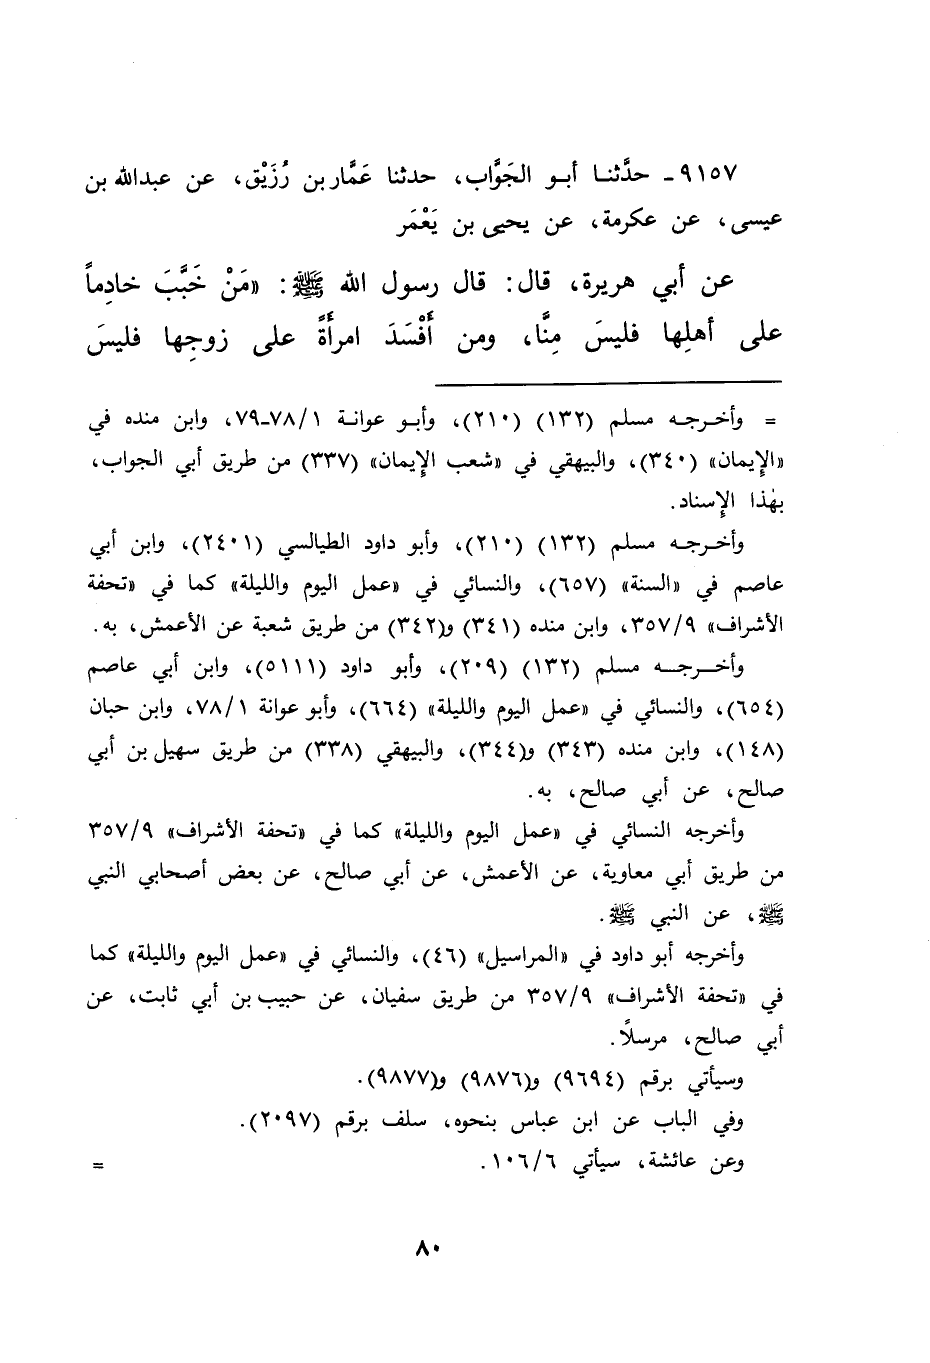 ٩١٥٧ـ حدَّثنـا أبـو الجَوَّاب، حدثنا عَمَّار بن رُزَيْق، عن عبدالله بن
عيسى، عن عكرمة، عن يحيى بن يَعْمَر
عن أبي هريرة، قال: قال رسول الله ﷺ: «مَنْ خَبَّبَ خادِماً
على أهلِها فليسَ مِنَّا، ومن أَفْسَدَ امرأةً على زوجِها فليسَ
= وأخـرجـه مسلم (١٣٢) (٢١٠)، وأبـو عوانـة ١/ ٧٨ـ٧٩، وابن منده في
«الإيمان» (٣٤٠)، والبيهقي في «شعب الإيمان» (٣٣٧) من طريق أبي الجواب،
بهٰذا الإسناد.
وأخـرجـه مسلم (١٣٢) (٢١٠)، وأبو داود الطيالسي (٢٤٠١)، وابن أبي
عاصم في «السنة» (٦٥٧)، والنسائي في «عمل اليوم والليلة» كما في «تحفة
الأشراف» ٩/ ٣٥٧، وابن منده (٣٤١) و(٣٤٢) من طريق شعبة عن الأعمش، به.
وأخـــرجــه مسلم (١٣٢) (٢٠٩)، وأبو داود (٥١١١)، وابن أبي عاصم
(٦٥٤)، والنسائي في «عمل اليوم والليلة» (٦٦٤)، وأبو عوانة ١/ ٧٨، وابن حبان
(١٤٨)، وابن منده (٣٤٣) و(٣٤٤)، والبيهقي (٣٣٨) من طريق سهيل بن أبي
صالح، عن أبي صالح، به.
وأخرجه النسائي في «عمل اليوم والليلة» كما في «تحفة الأشراف» ٩/ ٣٥٧
من طريق أبي معاوية، عن الأعمش، عن أبي صالح، عن بعض أصحابي النبي
ﷺ، عن النبي ﷺ.
وأخرجه أبو داود في «المراسيل» (٤٦)، والنسائي في «عمل اليوم والليلة» كما
في «تحفة الأشراف» ٩/ ٣٥٧ من طريق سفيان، عن حبيب بن أبي ثابت، عن
أبي صالح، مرسلاً.
وسيأتي برقم (٩٦٩٤) و(٩٨٧٦) و(٩٨٧٧).
وفي الباب عن ابن عباس بنحوه، سلف برقم (٢٠٩٧).
وعن عائشة، سيأتي ٦/ ١٠٦. =
٨٠